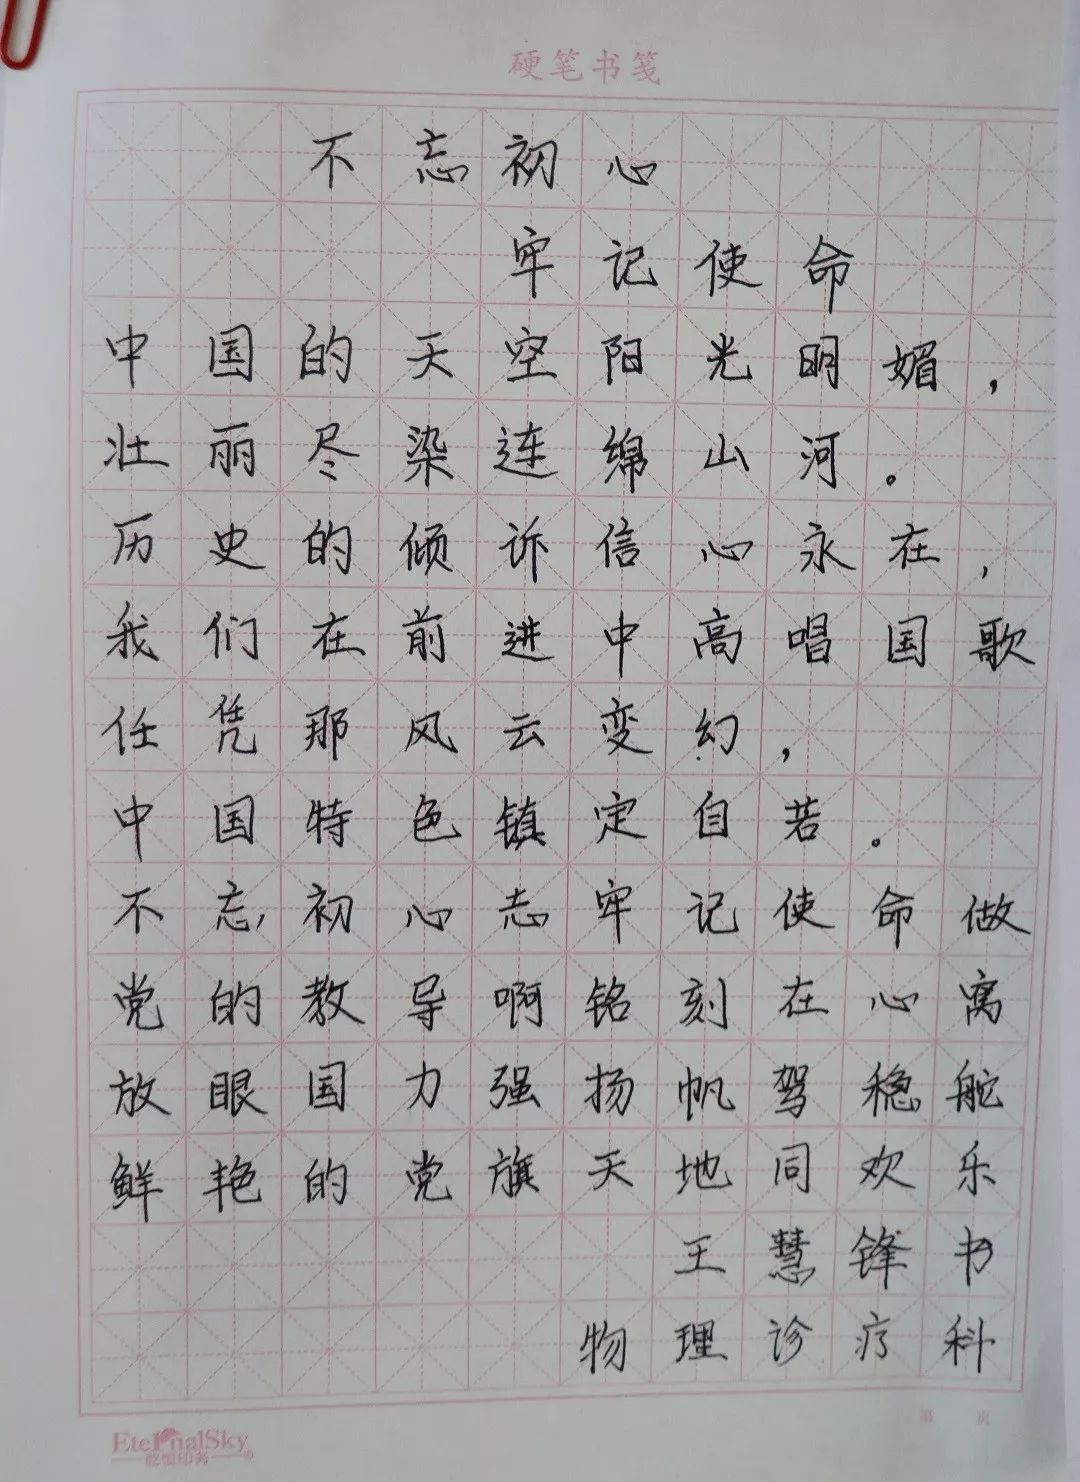 硬笔书笺
不忘初心
牢记使命
中国的天空阳光明媚，
壮丽尽染连绵山河。
历史的倾诉信心永在，
我们在前进中高唱国歌
任凭那风云变幻，
中国特色镇定自若。
不忘初心志牢记使命做
党的教导啊铭刻在心窝
放眼国力强扬帆驾稳舵
鲜艳的党旗天地同欢乐
王慧锋书
物理诊疗科
第 页
EternalSky